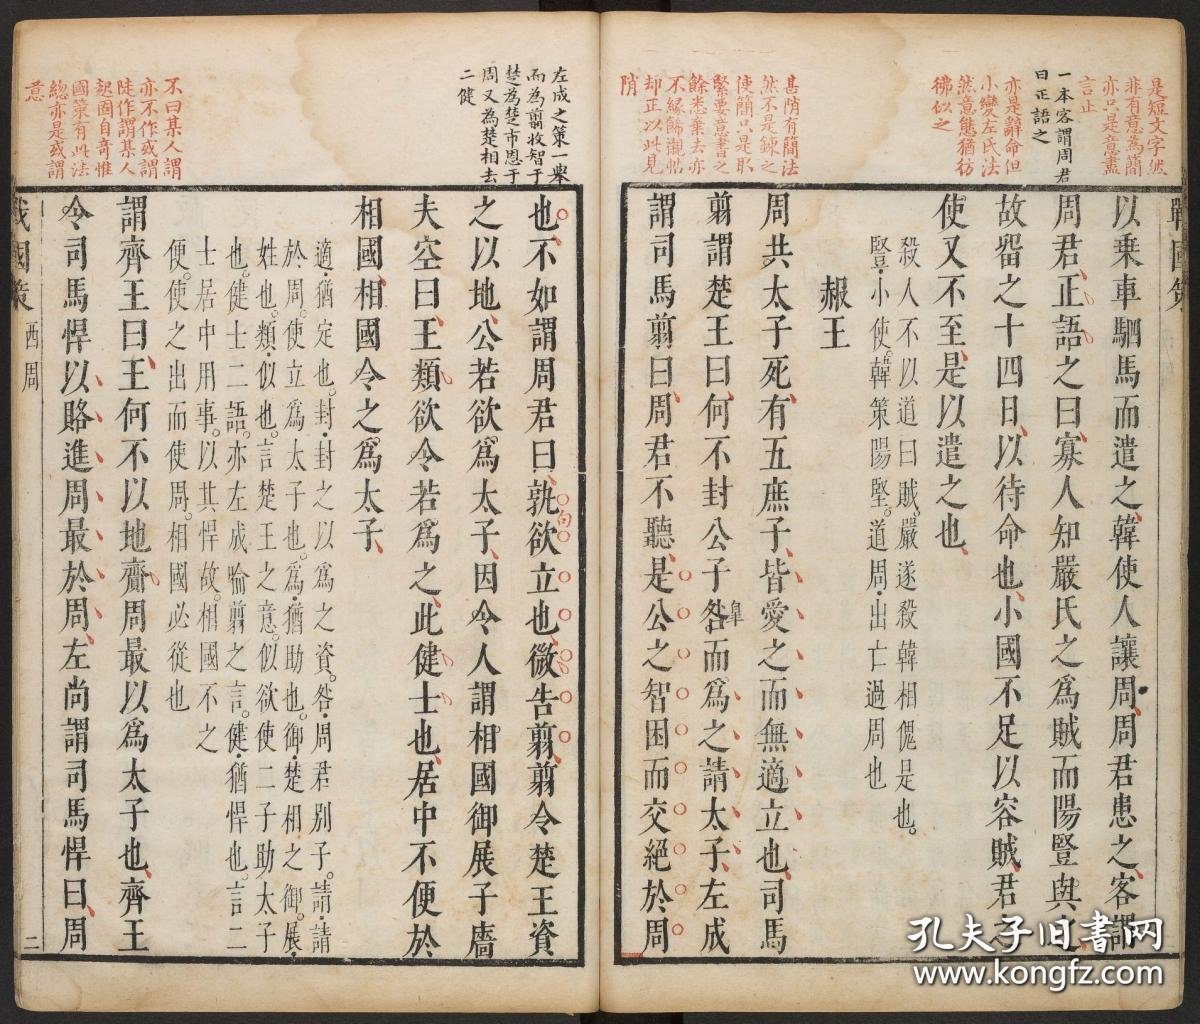 是短文字然
非有意為簡
亦只是意盡
言止
一本客謂周君
曰正語之
亦是辭命但
小變左氏法
然意態猶彷
彿似之
甚陗有簡法
然不是鍊之
使簡只是取
緊要意書之
餘悉棄去亦
不緣飾襯帖
却正以此見
陗
戰國策
以乗車駟馬而遣之韓使人讓周周君患之客謂
周君正語之曰寡人知嚴氏之為賊而陽豎與之
故畱之十四日以待命也小國不足以容賊君之
使又不至是以遣之也
殺人不以道曰賊嚴遂殺韓相傀是也
豎小使韓策陽堅道周出亡過周也
赧王
周共太子死有五庶子皆愛之而無適立也司馬
翦謂楚王曰何不封公子咎而為之請太子左成
皐
謂司馬翦曰周君不聽是公之智困而交絕於周
左成之策一舉
而為翦收智于
楚為楚市恩于
周又為楚相去
二健
不曰某人謂
亦不作或謂
陡作謂某人
起固自奇惟
國策有此法
總亦是或謂
意
也不如謂周君曰孰欲立也微告翦翦令楚王資
句
之以地公若欲為太子因令人謂相國御展子廧
夫空曰王類欲令若為之此健士也居中不便於
相國相國令之為太子
適猶定也封封之以為之資咎周君別子請請
於周使立為太子也為猶助也御楚相之御展
姓也類似也言楚王之意似欲使二子助太子
也健士二語亦左成喻翦之言健猶悍也言二
士居中用事以其悍故相國不之
便使之出而使周相國必從也
謂齊王曰王何不以地齎周最以為太子也齊王
令司馬悍以賂進周最於周左尚謂司馬悍曰周
戰國策
西周
二
孔夫子旧書网
www.kongfz.com